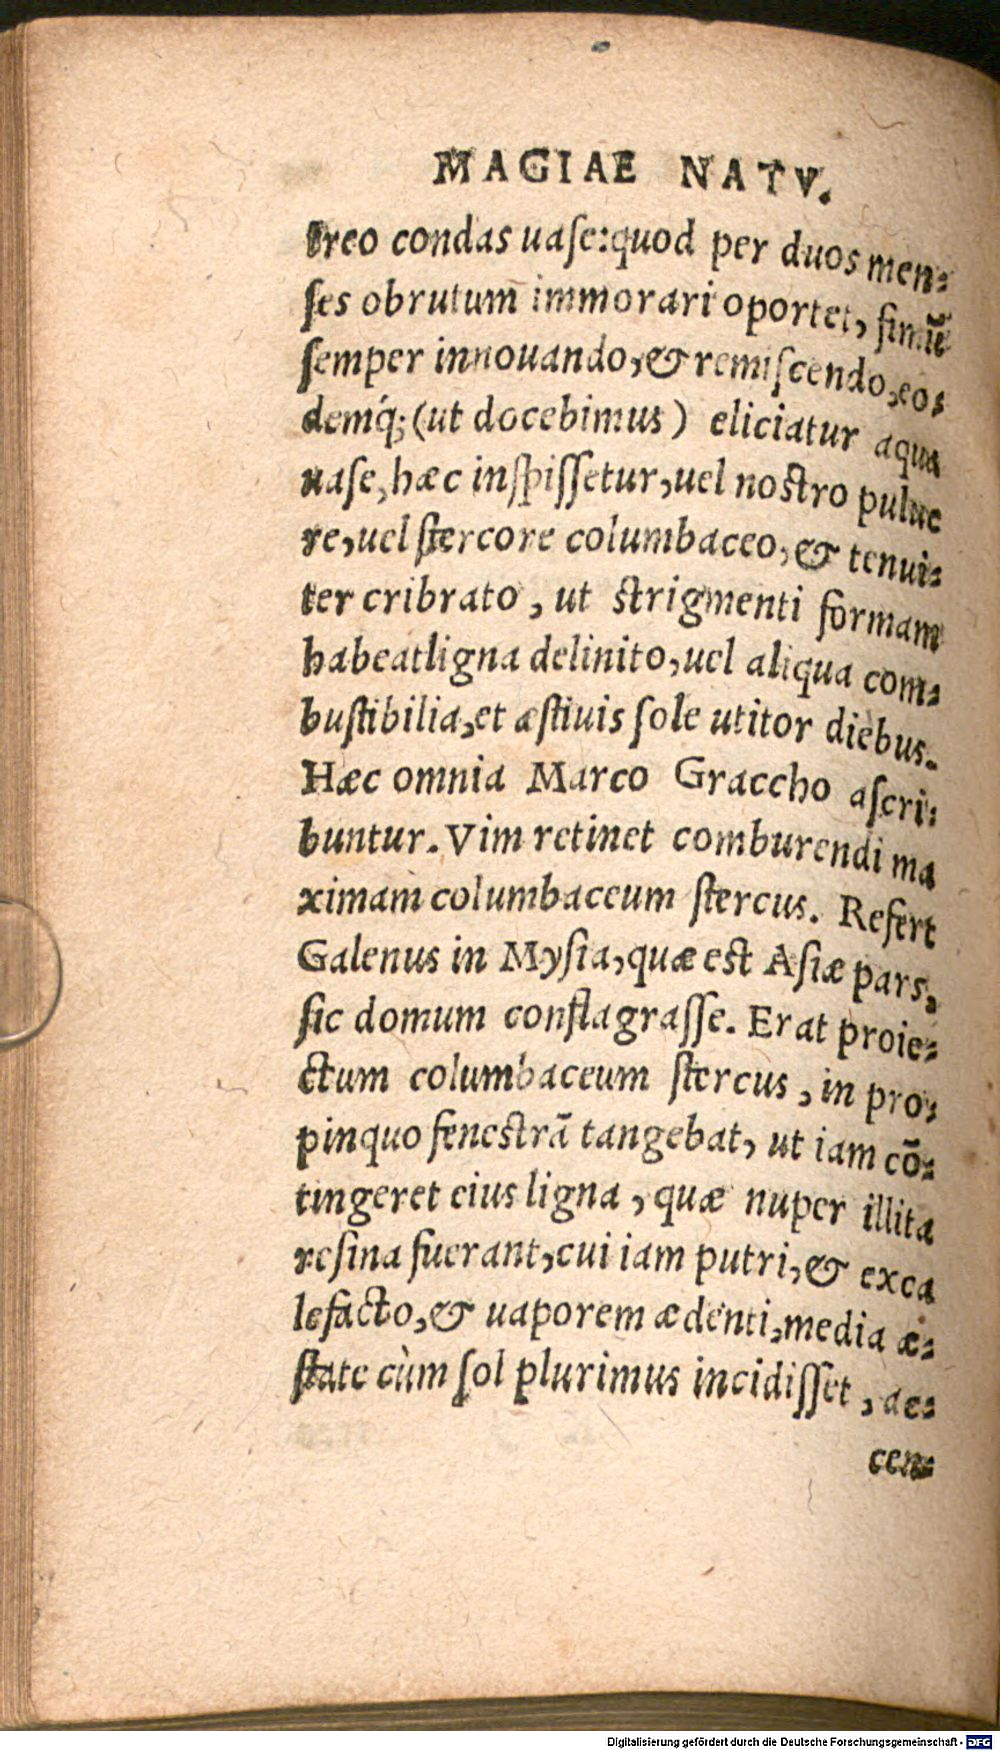 MAGIAE NATV.
treo condas uase:quod per duos men-
ses obrutum immorari oportet, fimũ
semper innouando,& remiscendo,eos
demq́;(ut docebimus) eliciatur aqua
uase,hæc inspissetur,uel nostro pulue
re,uel stercore columbaceo,& tenui-
ter cribrato, ut strigmenti formam
habeatligna delinito,uel aliqua com-
bustibilia,et æstiuis sole utitor diebus.
Hæc omnia Marco Graccho ascri-
buntur.Vim retinet comburendi ma
ximam columbaceum stercus. Refert
Galenus in Mysia,quæ est Asiæ pars,
sic domum conflagrasse. Erat proie-
ctum columbaceum stercus, in pro-
pinquo fenestrã tangebat, ut iam cõ-
tingeret eius ligna, quæ nuper illita
resina fuerant,cui iam putri,& exca
lefacto,& uaporem ædenti,media æ-
state cùm sol plurimus incidisset, ac-
cen-
Digitalisierung gefördert durch die Deutsche Forschungsgemeinschaft - DFG